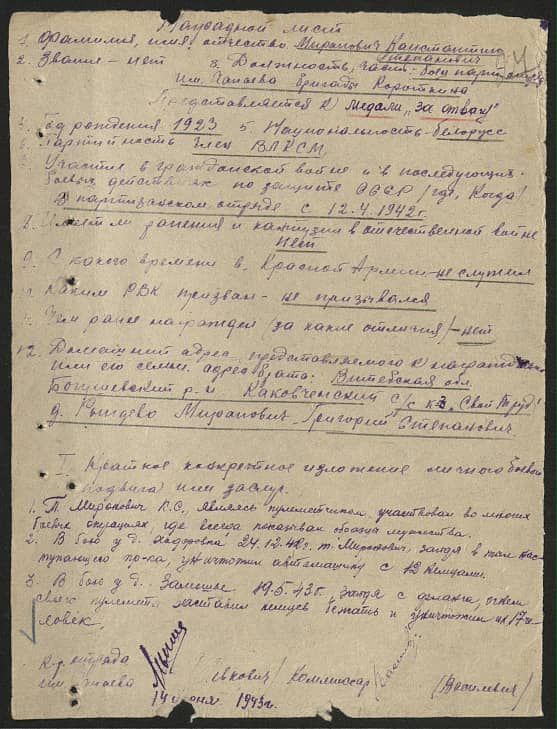 Наградной лист
1. Фамилия, имя, отчество Миронович Константин
Степанович
2. Звание - нет 3. Должность, часть - боец парт.
им. Чапаева бригады Короткина
Представляется к медали „За отвагу"
Год рождения 1923 5. Национальность - белорусс
6. Партийность Член ВЛКСМ
7. Участие в гражданской войне и в последующих
боевых действиях по защите СССР (где, когда)
В партизанском отряде с 12.4.1942г.
8. Имеет ли ранения и контузии в отечественной войне
Нет
9. С какого времени в Красной Армии - не служил
10. Каким РВК призван - не призывался
11. Чем ранее награжден (за какие отличия) - нет
12. Домашний адрес представляемого к награждению
или его семьи. адрес брата. Витебская обл.
Богушевский р-н с/с к-з „Свой Труд"
д. Миронович Григорий Степанович
I. Краткое конкретное изложение личного боевого
подвига или заслуг.
1. Т. Миронович К.С., являясь пулеметчиком, участвовал во многих
боевых операциях, где всегда показывал образцы мужества.
2. В бою у д. Ходоровка 24.12.42г. т. Миронович, зайдя в тыл нас-
тупающего пр-ка, уничтожил автомашину с 12 немцами.
3. В бою у д. Замошье 19.5.43г. зайдя с фланга, огнем
своего пулемета заставил немцев бежать и уничтожил их 17 че-
ловек.
К-р отряда
им. Чапаева
Комиссар (Василевич)
14 июня 1943г.